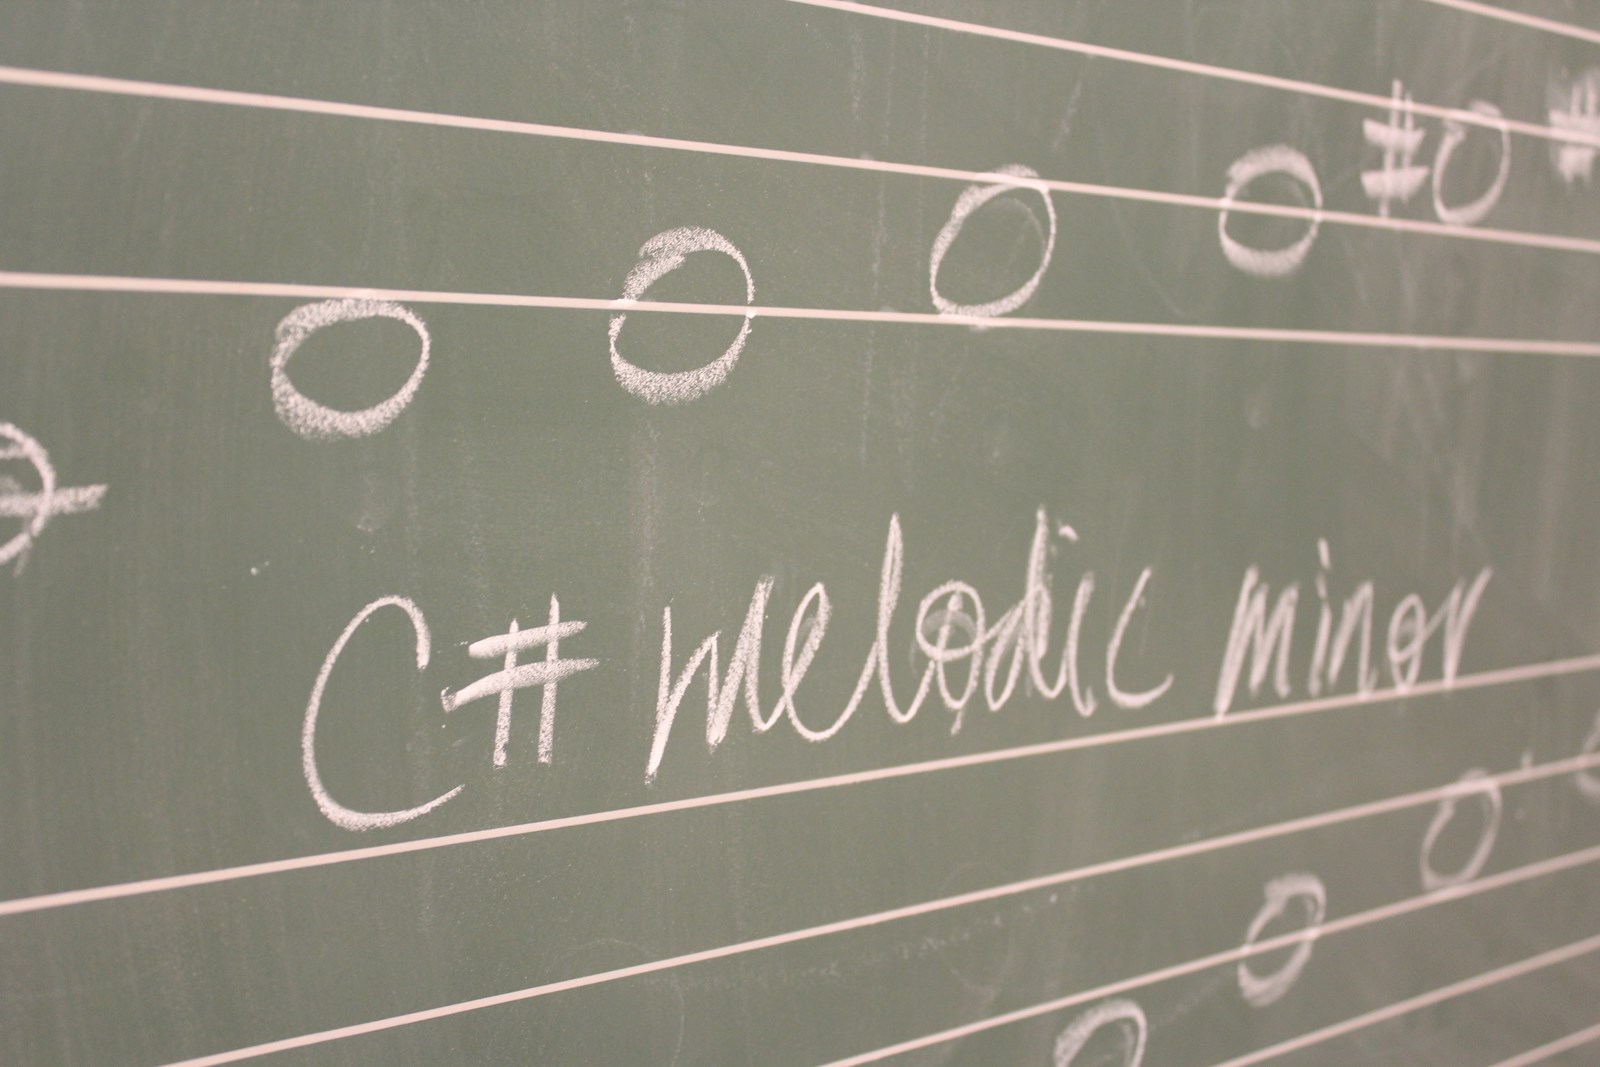 C# melodic minor